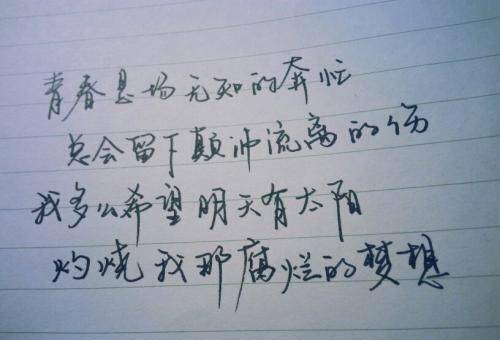 青春是场无知的奔忙
总会留下颠沛流离的伤
我多么希望明天有太阳
灼烧我那腐烂的梦想